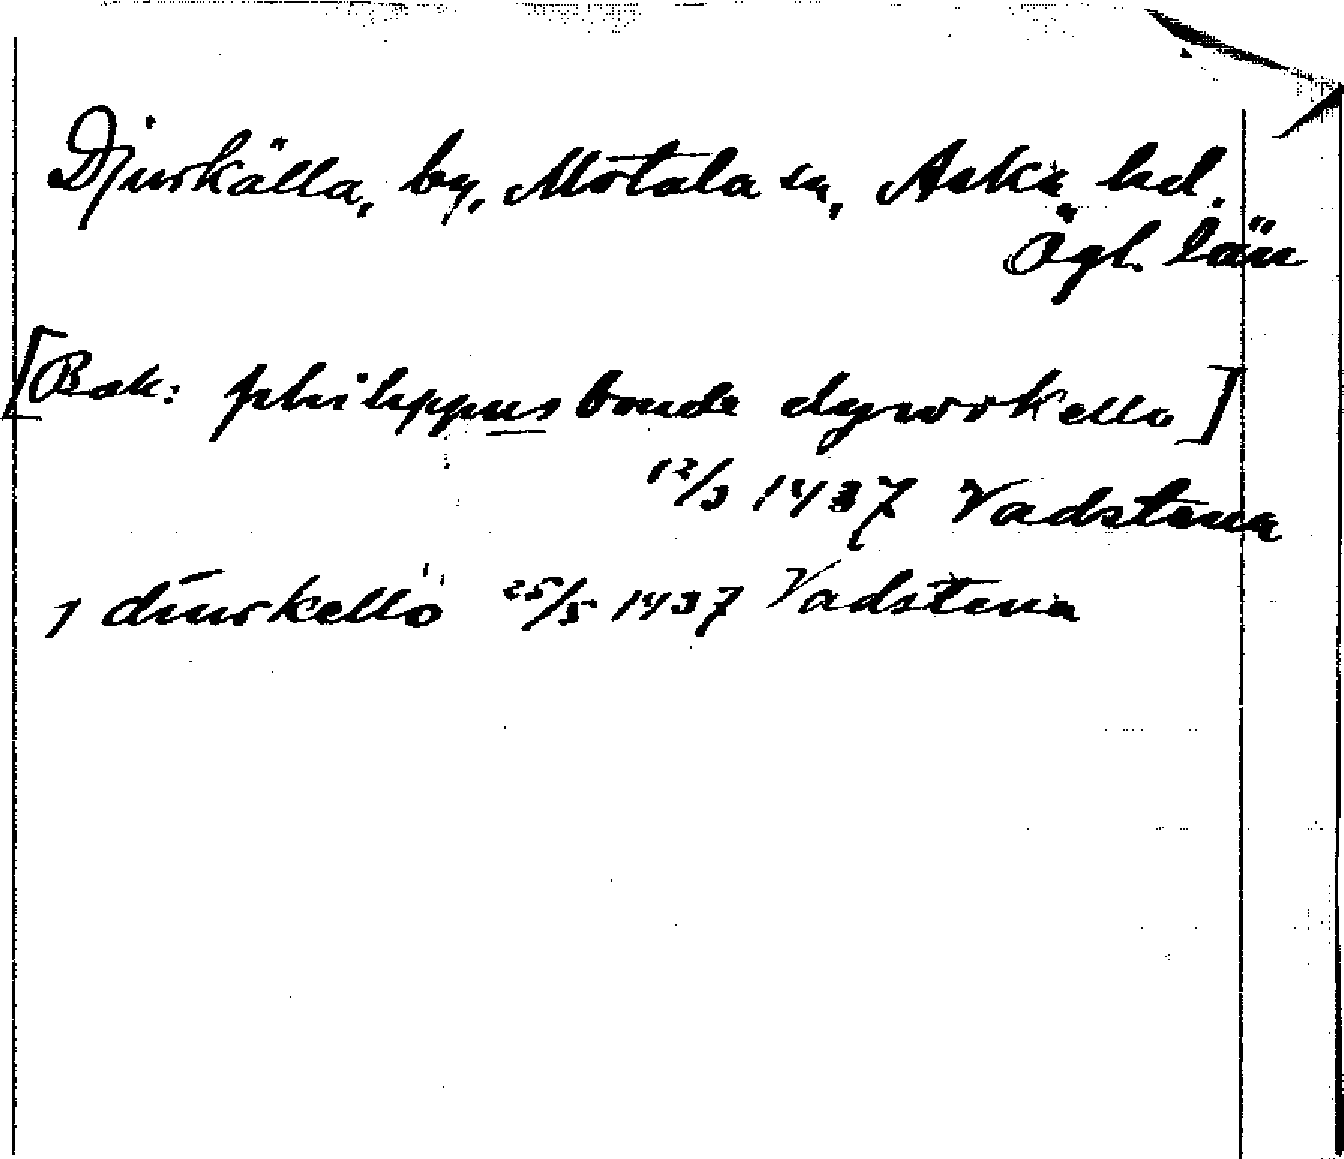 Djurkälla, by, Motala sn, Aska hd.
Ögl. län
[Bak: philippus bonde dywrkello]
12/3 1437 Vadstena
J diurkellö 25/5 1437 Vadstena